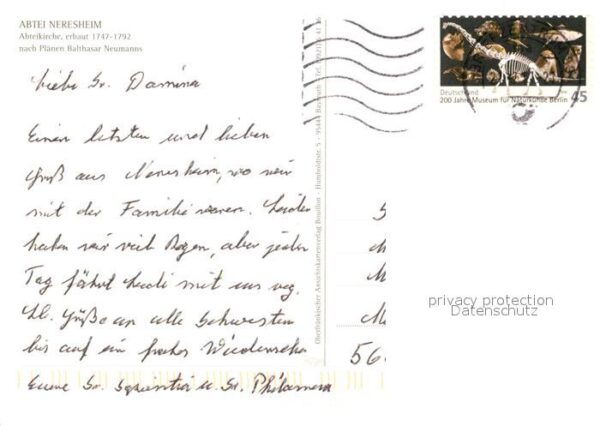 ABTEI NERESHEIM
Abteikirche, erbaut 1747-1792
nach Plänen Balthasar Neumanns
Liebe Sr. Damina
Einen letzten und lieben
Gruß aus Neresheim, wo wir
mit der Familie waren. Leider
haben wir viel Regen, aber jeden
Tag fährt Heidi mit uns weg.
Lb. Grüße an alle Schwestern
bis auf ein frohes Wiedersehen
Eure Sr. u. Sr. Philomena
Oberfränkischer Ansichtskartenverlag Bouillon · Humboldtstr. 5 · 95444 Bayreuth
Deutschland
45
200 Jahre Museum für Naturkunde Berlin
5
M
M
M
56
privacy protection
Datenschutz